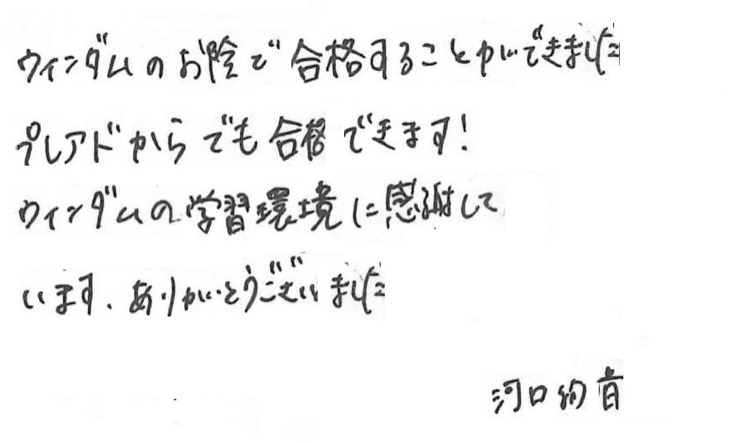 ウィンダムのお陰で合格することができました
プレアドからでも合格できます!
ウィンダムの学習環境に感謝して
います、ありがとうございました
河口絢音